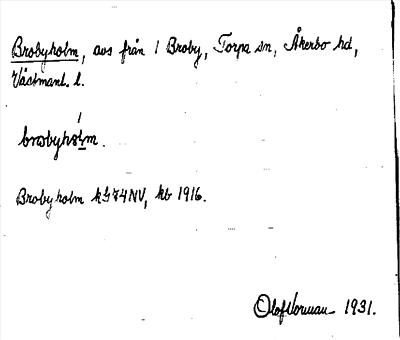 Brobyholm, avs från 1 Broby, Torpa sn, Åkerbo hd,
Västmanl. l.
brobyhålm.
Brobyholm kG74NV, kb 1916.
Olof Norman 1931.